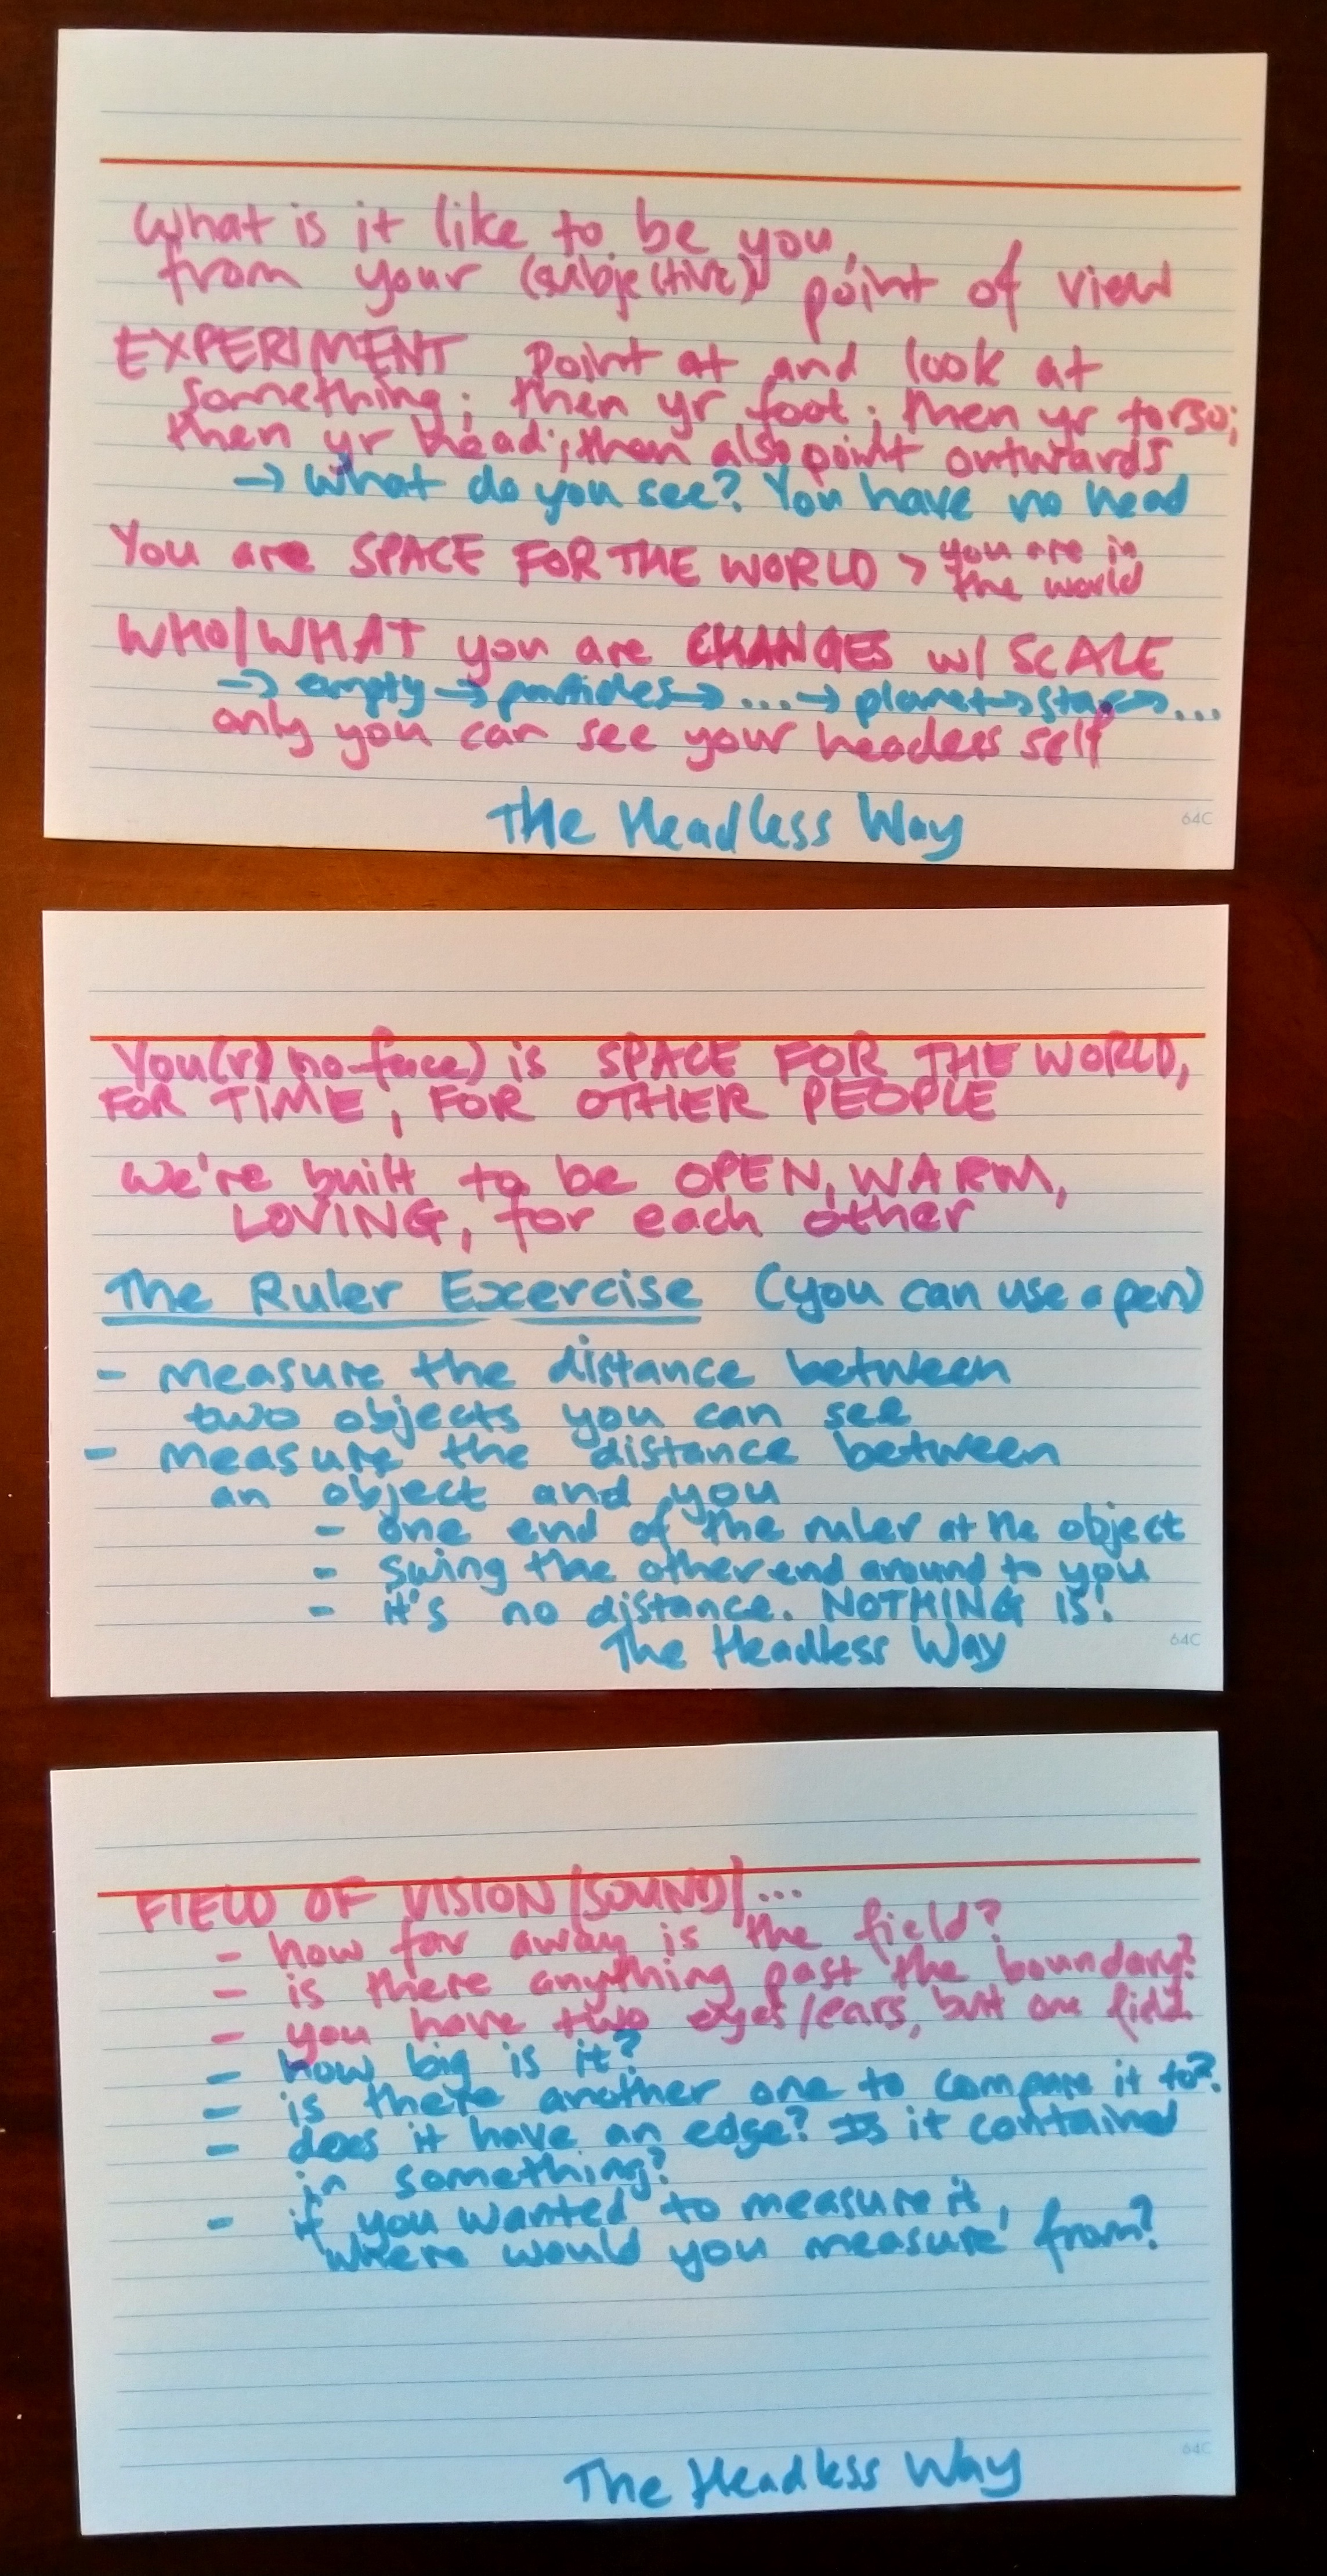 What is it like to be you,
from your (subjective) point of view
EXPERIMENT Point at and look at
something; then yr foot; then yr torso;
then yr head; then also point outwards
→ What do you see? You have no head
You are SPACE FOR THE WORLD > you are in
the world
WHO/WHAT you are CHANGES w/ SCALE
→ empty → particles → ... → planet → star → ...
only you can see your headless self
The Headless Way
64C
You(r) no-face) is SPACE FOR THE WORLD,
FOR TIME, FOR OTHER PEOPLE
We're built to be OPEN, WARM,
LOVING, for each other
The Ruler Exercise (you can use a pen)
- measure the distance between
two objects you can see
- measure the distance between
an object and you
- one end of the ruler at the object
- swing the other end around to you
- it's no distance. NOTHING IS!
The Headless Way
64C
FIELD OF VISION/SOUND/...
- how far away is the field?
- is there anything past the boundary?
- you have two eyes/ears, but one field
- how big is it?
- is there another one to compare it to?
- does it have an edge? Is it contained
in something?
- if you wanted to measure it,
where would you measure from?
The Headless Way
64C